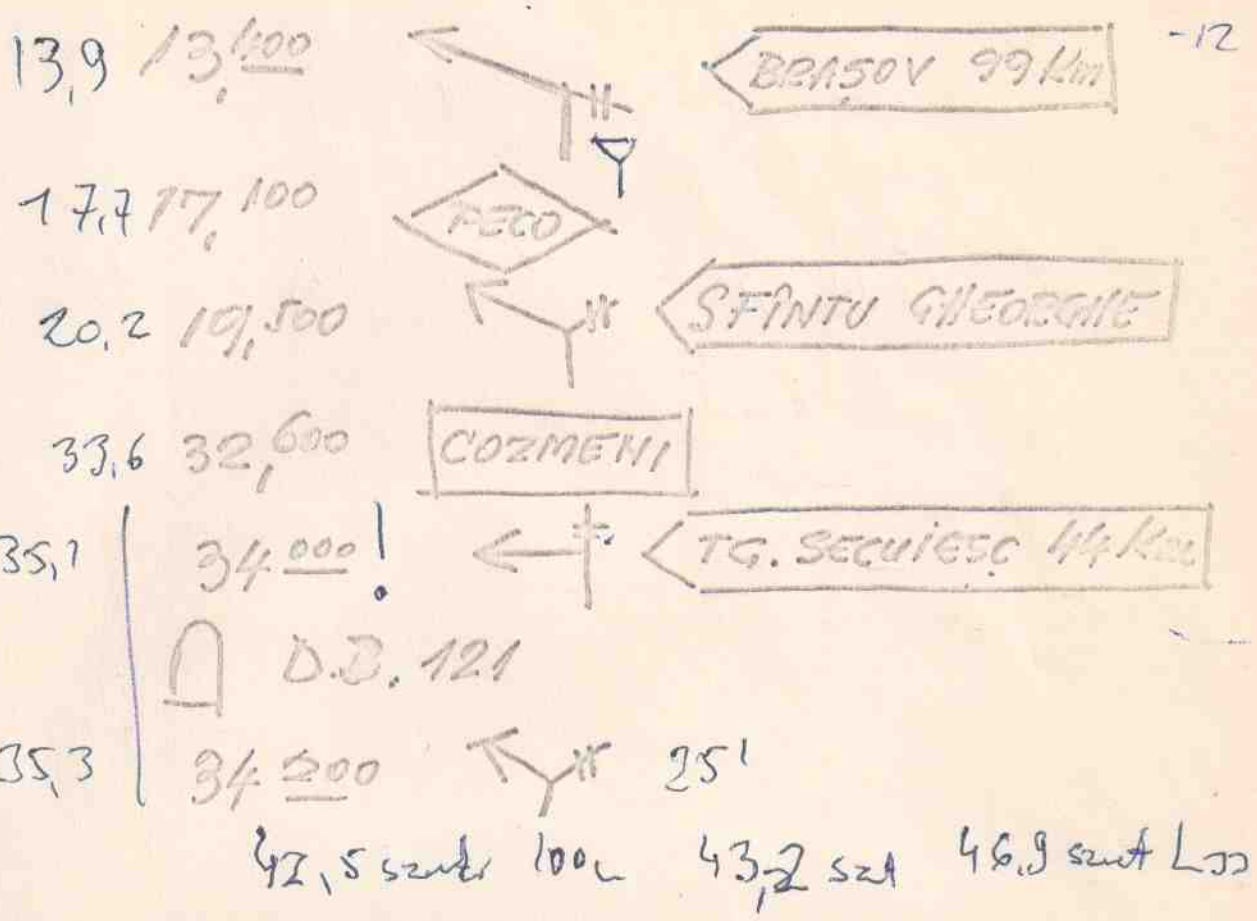 13,9 13,400 BRAŞOV 99 Km -12
17,7 17,100 PECO
20,2 19,500 SFÎNTU GHEORGHE
33,6 32,600 COZMENI
35,1 34 000! TG. SECUIESC 44 Km
D.B. 121
35,3 34 200 25'
42,5 100 43,2 szut 46,9 szut